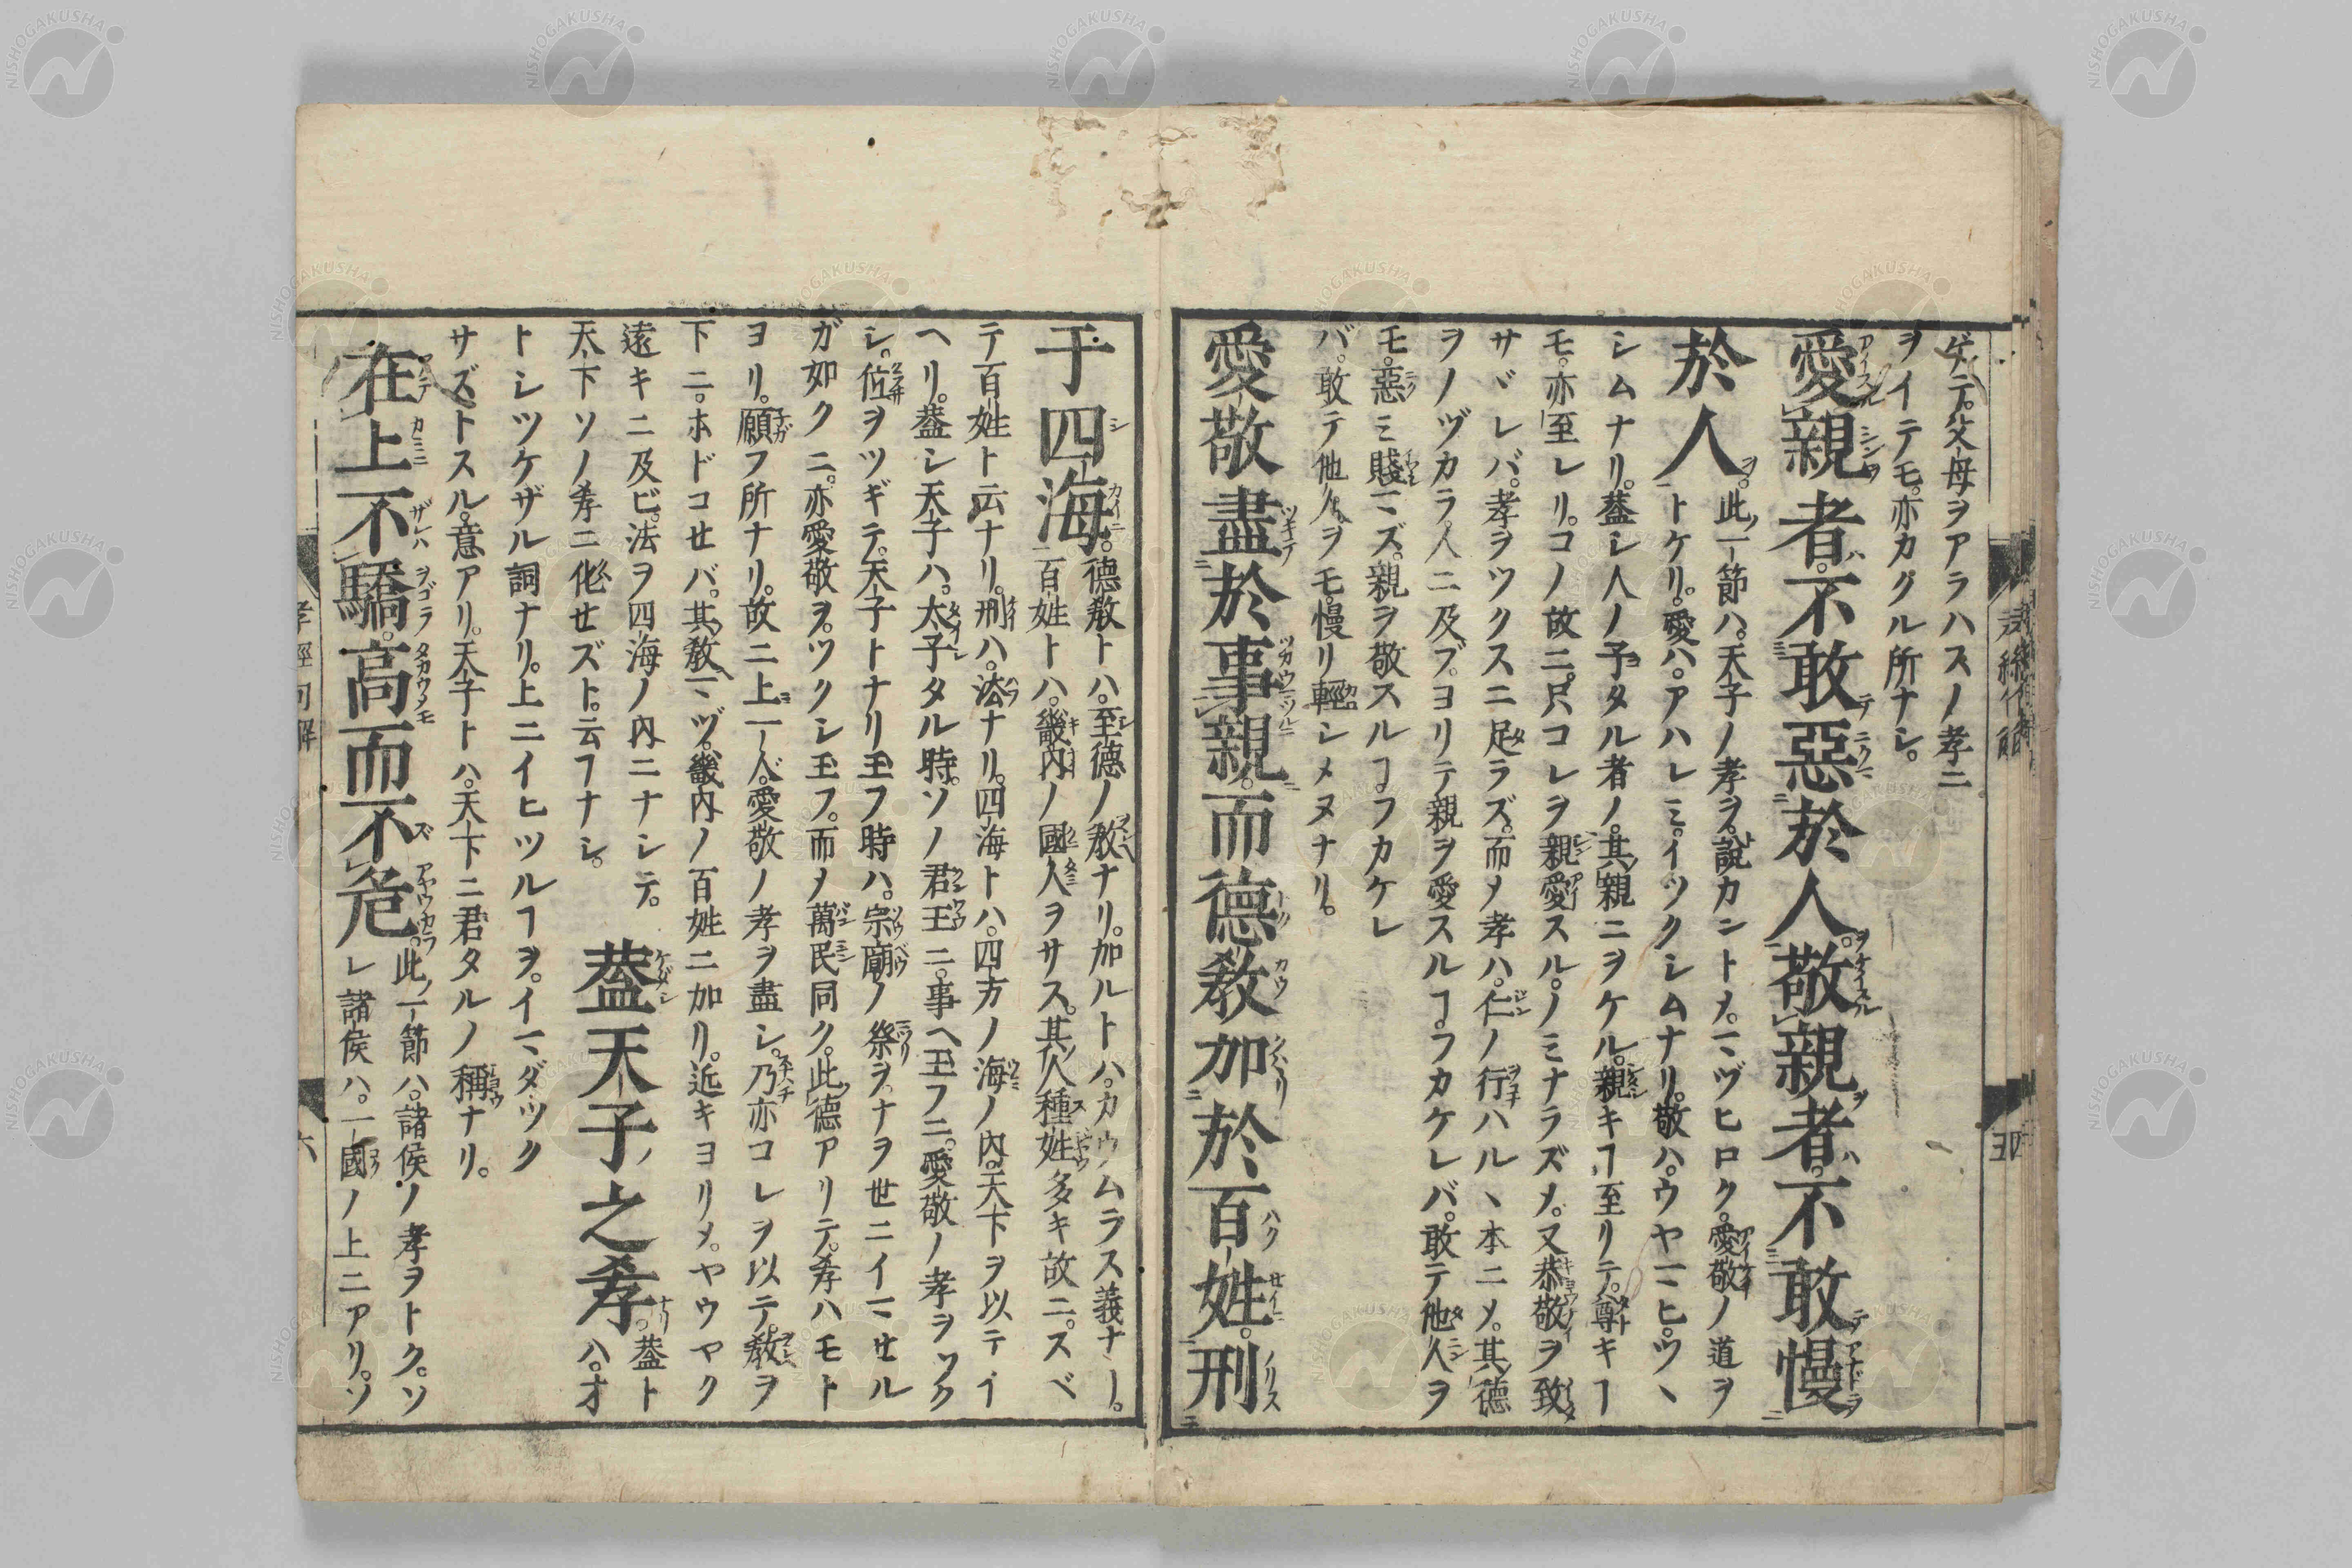 ゲテ。父母ヲアラハスノ孝ニ
ヲイテモ。亦カグル所ナシ。
愛親者。不敢惡於人。敬親者。不敢慢
於人。此ノ一節ハ。天子ノ孝ヲ。說カントメ。マヅヒロク。愛敬ノ道ヲ
トケリ。愛ハ。アハレミ。イツクシムナリ。敬ハ。ウヤマヒ。ツヽ
シムナリ。葢シ人ノ子タル者ノ。其親ニヲケル。親キヿ至リテ。尊キヿ
モ。亦至レリ。コノ故ニ。只コレヲ親愛スル。ノミナラズメ。又恭敬ヲ致
サヾレバ。孝ヲツクスニ足ラズ。而メ孝ハ。仁ノ行ハルヽ本ニメ。其德
ヲノヅカラ。人ニ及ブ。ヨリテ親ヲ愛スルヿ。フカケレバ。敢テ他人ヲ
モ。惡ミ賤マズ。親ヲ敬スルヿフカケレ
バ。敢テ他人ヲモ。慢リ輕シメヌナリ。
愛敬盡於事親。而德教加於百姓。刑
于四海。德教トハ。至德ノ教ナリ。加ルトハ。カウムラス義ナリ。
百姓トハ。畿内ノ國人ヲサス。其人種姓多キ故ニ。スベ
テ百姓ト云ナリ。刑ハ。法ナリ。四海トハ。四方ノ海ノ内。天下ヲ以テイ
ヘリ。葢シ天子ハ。太子タル時。ソノ君王ニ。事ヘ玉フニ。愛敬ノ孝ヲツク
シ。位ヲツギテ。天子トナリ玉フ時ハ。宗廟ノ祭ヲ。ナヲ世ニイマセル
ガ如クニ。亦愛敬ヲ。ツクシ玉フ。而メ萬民同ク。此德アリテ。孝ハモト
ヨリ。願フ所ナリ。故ニ上一人。愛敬ノ孝ヲ盡シ。乃亦コレヲ以テ。教ヲ
下ニ。ホドコセバ。其教マヅ。畿内ノ百姓ニ加リ。近キヨリメ。ヤウヤク
遠キニ及ビ。法ヲ四海ノ内ニナシテ。
天下ソノ孝ニ化セズト。云フナシ。
葢天子之孝。葢ト
ハ。オ
トシツケザル詞ナリ。上ニイヒツルヿヲ。イマダツク
サズトスル。意アリ。天子トハ。天下ニ君タルノ稱ナリ。
在上不驕。高而不危。此ノ一節ハ。諸侯ノ孝ヲトク。ソ
レ諸侯ハ。一國ノ上ニアリ。ソ
孝經句解
六